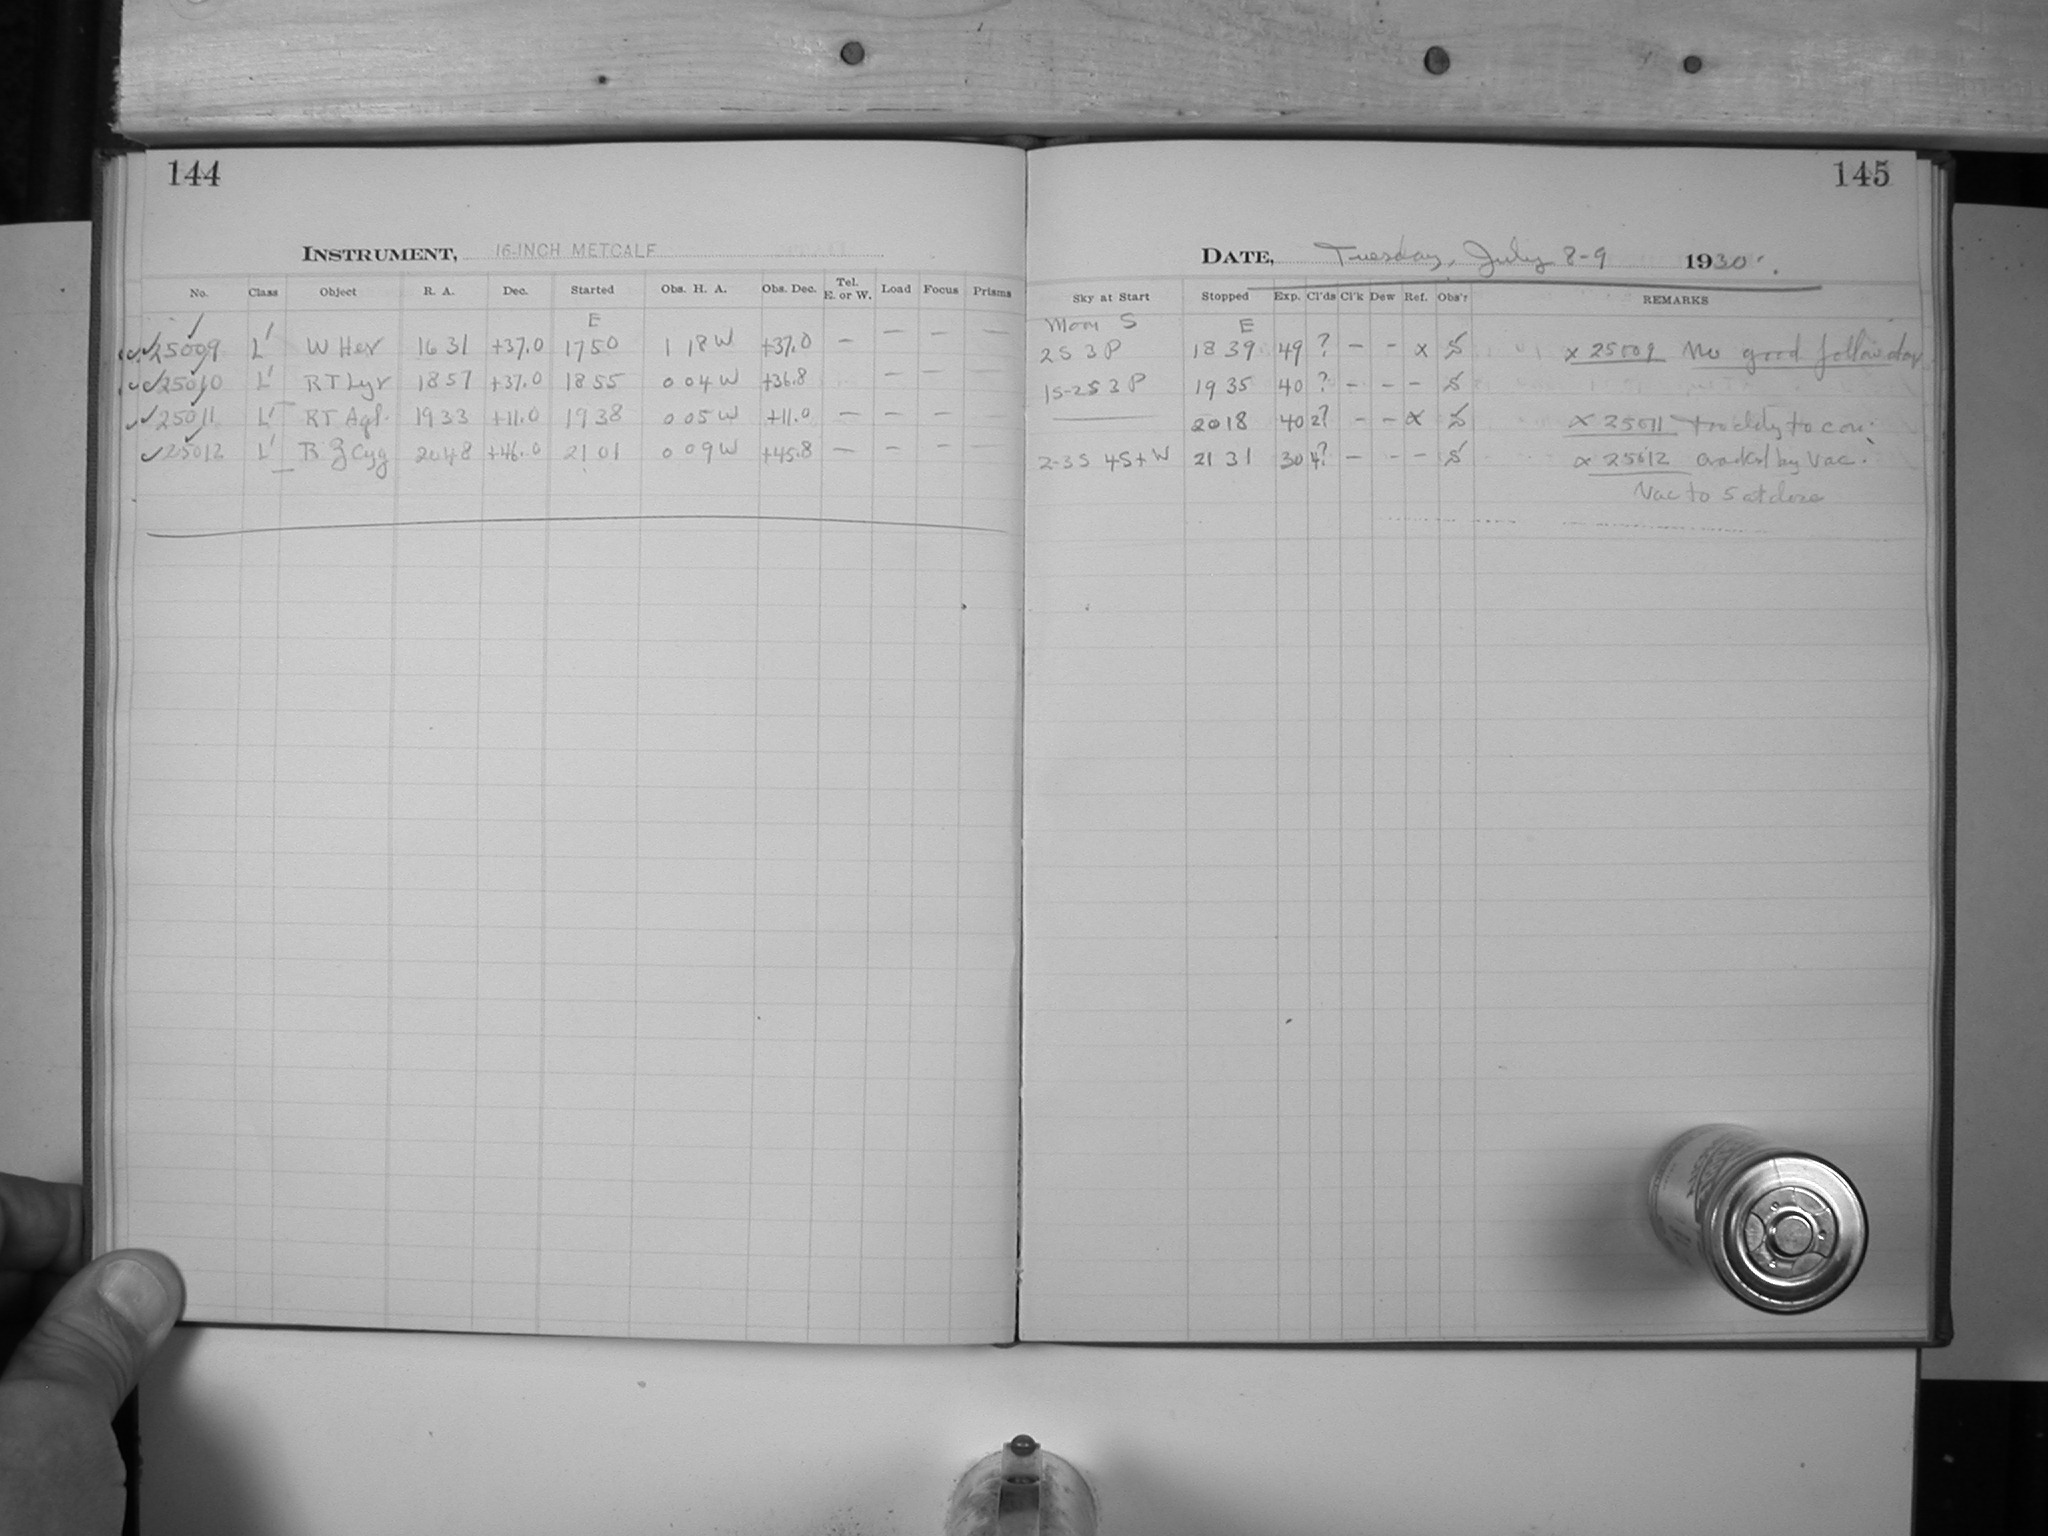 144
INSTRUMENT, 16-INCH METCALF
No. Class Object R. A. Dec. Started Obs. H. A. Obs. Dec. Tel. E. or W. Load Focus Prisms
E
25009 L' W Her 16 31 +37.0 17 50 1 18 W +37.0 — — — —
25010 L' RT Lyr 18 57 +37.0 18 55 0 04 W +36.8 — — —
25011 L' RT Aql. 19 33 +11.0 19 38 0 05 W +11.0 — — — —
25012 L' Cyg 20 48 +46.0 21 01 0 09 W +45.8 — — — —
145
DATE, Tuesday, July 8-9 1930.
Sky at Start Stopped Exp. Cl'ds Cl'k Dew Ref. Obs'r REMARKS
Moon S E
2S 3P 18 39 49 ? — — x S x 25009 No good follow
1S-2S 3P 19 35 40 ? — — — S
—— 20 18 40 2? — — x S x 25011 to
2-3S 4S+W 21 31 30 4? — — — S x 25012 cracked by vac.
Vac to 5 at close